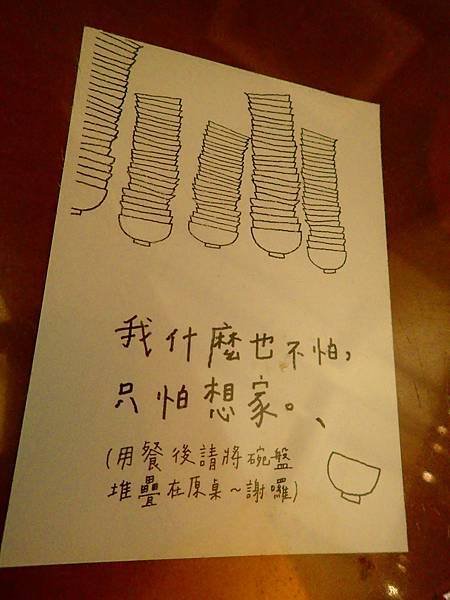 我什麼也不怕,
只怕想家。、
(用餐後請將碗盤
堆疊在原桌~謝囉)